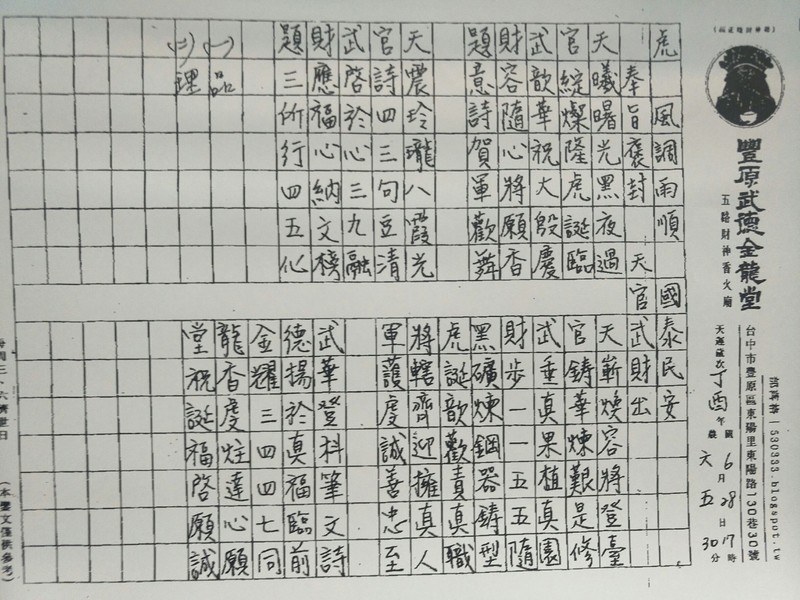 （福祿財壽星組）
豐原武德金龍堂
五路財神香火廟
台中市豐原區東陽里東陽路130巷30號
部落格：530333.blogspot.tw
天運歲次丁酉年
農六月五
國6月28日17時30分
虎 風調雨順 國泰民安
奉旨褒封 天官武財出
天曦曙光黑夜過
官綻燦隆虎誕臨
武歆華祝大殷慶
財容隨心將願香
題意詩賀軍歡舞
天震玲瓏八霞光
官詩四三句豆清
武啓於心三九融
財應福心納文榜
題三所行四五化
(一)品
(三)理
天嶄煥容將登臺
官鑄華煉艱是修
武垂真果植真園
財步一一五五隨
黑礦煉鋼器鑄型
虎誕歆歡責真職
將轄齊迎擁真人
軍護虔誠善忠至
武華登科筆文詩
德揚於真福臨前
金耀三四四七同
龍香虔炷達心願
堂祝誕福啓願誠
每週三、六濟世日
（本鸞文僅供參考）